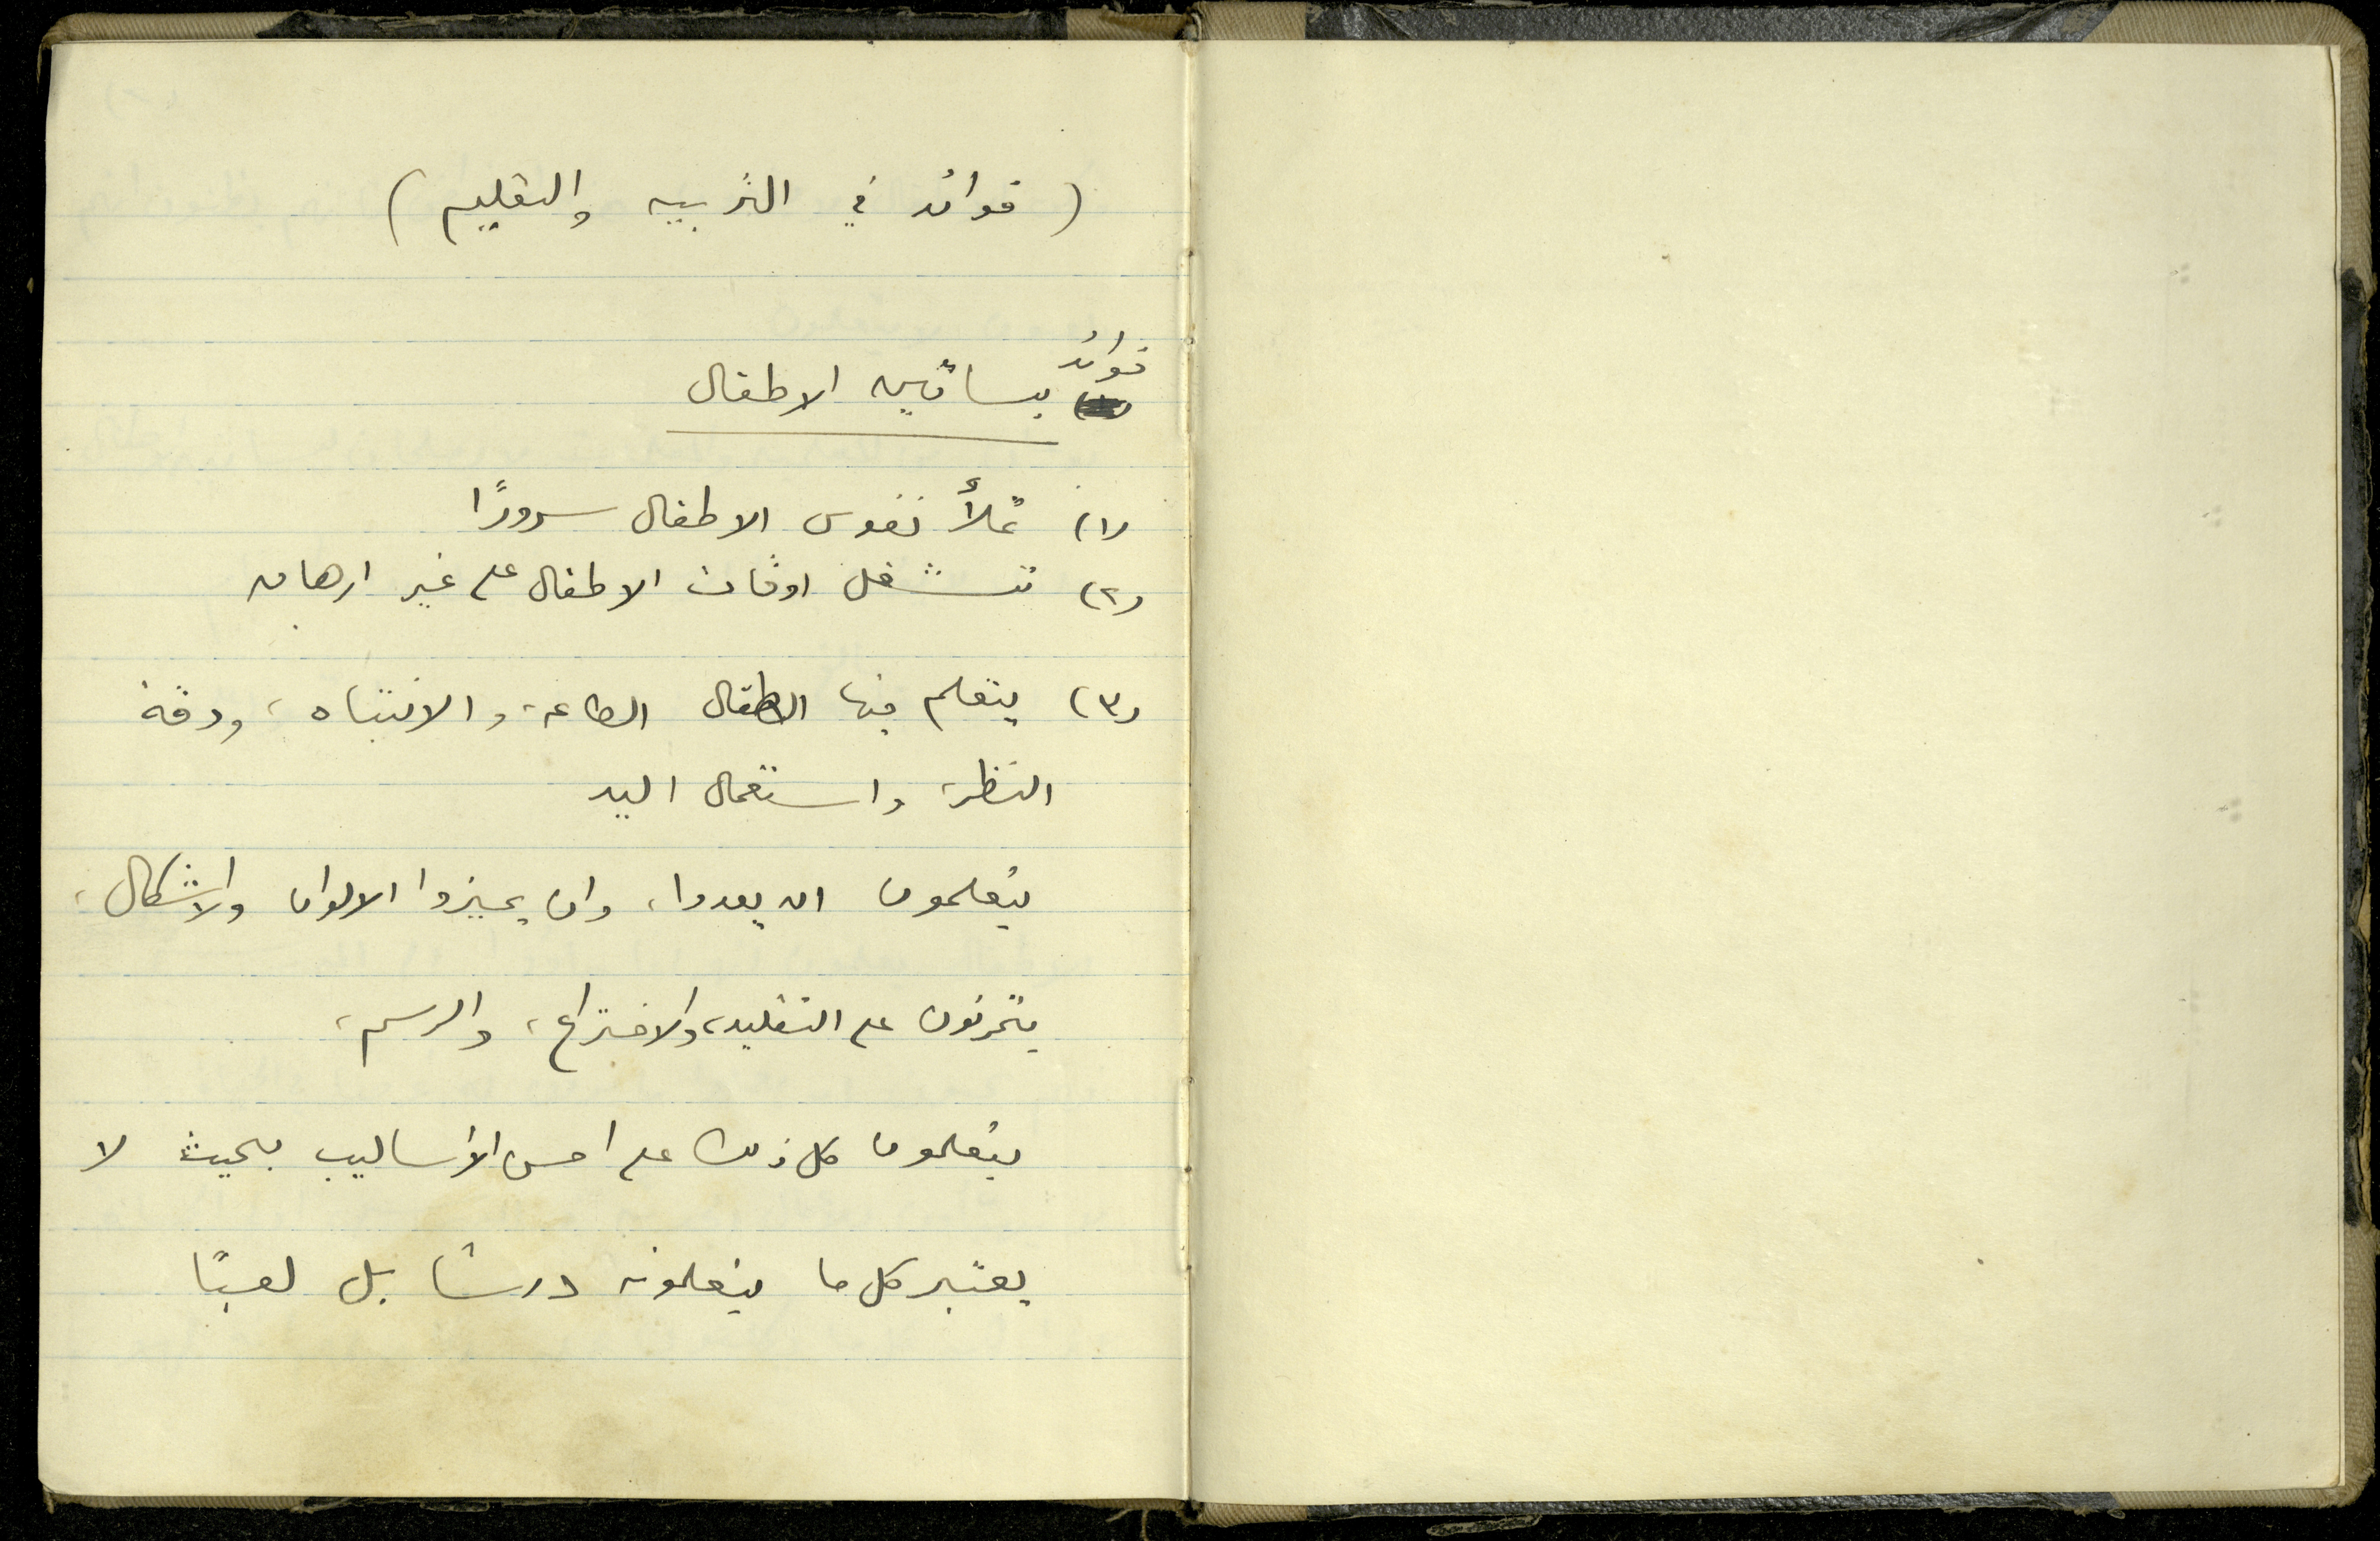 (فوائد في التربيه والتعليم)
فوائد
بساتين الاطفال
(١) تملأ نفوس الاطفال سرورًا
(٢) تشغل اوقات الاطفال على غير ارهاق
(٣) يتعلم فيها الاطفال الطاعة، والانتباه، ودقة
النظر، واستعمال اليد
يتعلمون ان يعدوا، وان يميزوا الالوان والاشكال،
يتمرنون على التقليد، والاختراع، والرسم،
يتعلمون كل ذلك على احسن الأساليب بحيث لا
يعتبر كل ما يتعلمونه درسًا بل لعبًا